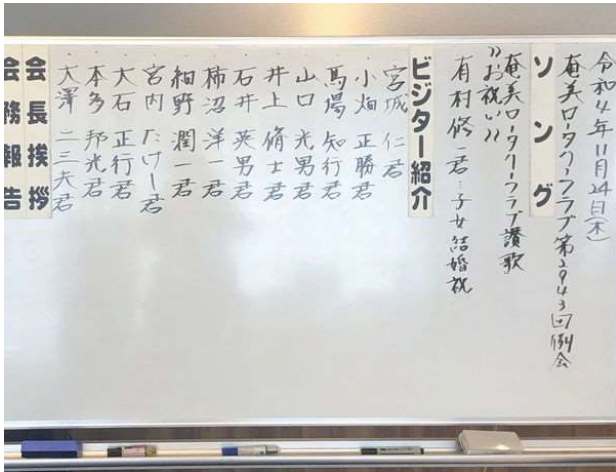 令和4年11月24日(木)
奄美ロータリークラブ第2943回例会
ソング
奄美ロータリークラブ讃歌
"お祝い"
有村修一君…子女結婚祝
ビジター紹介
・宮城 仁君
・小畑 正勝君
・馬場 知行君
・山口 光男君
・井上 脩士君
・石井 英男君
・柿沼 洋一君
・細野 潤一君
・宮内 たけし君
・大石 正行君
・本多 邦光君
・大澤 二三夫君
会長挨拶
会務報告